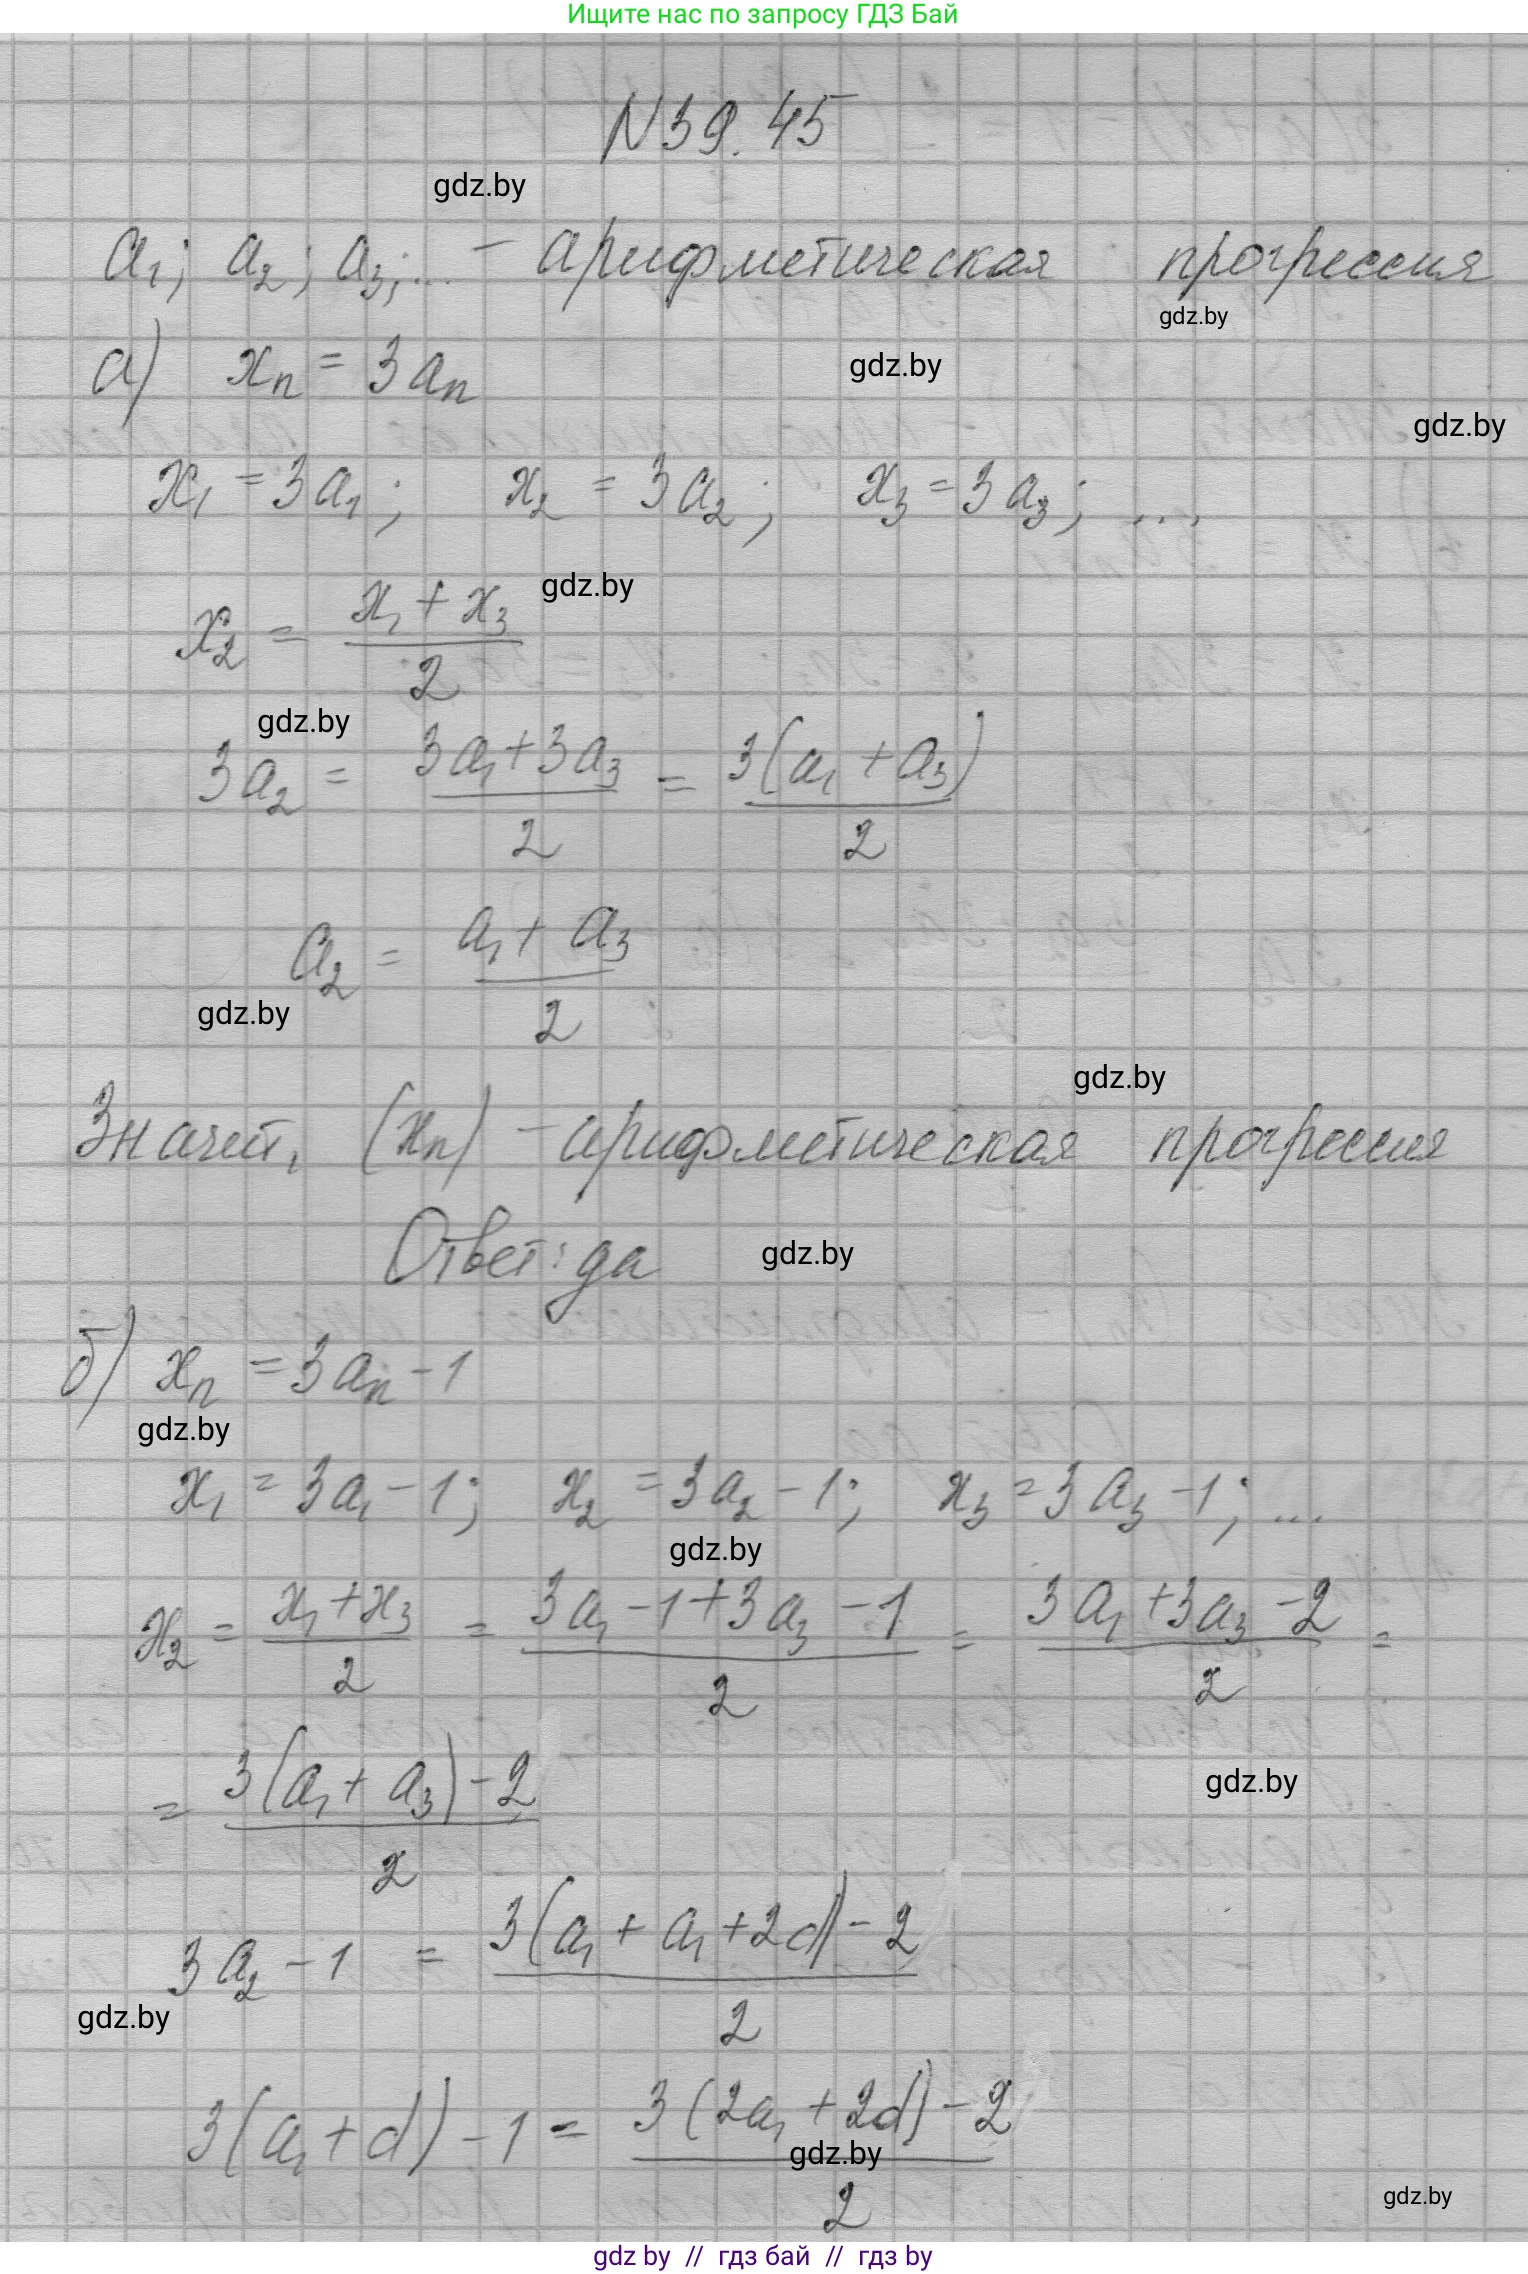 Ищите нас по запросу ГДЗ Бай
N39.45
gdz.by
a₁; a₂; a₃;... - арифметическая прогрессия
gdz.by
а) xₙ = 3aₙ
gdz.by
gdz.by
x₁ = 3a₁; x₂ = 3a₂; x₃ = 3a₃; ...
gdz.by
x₂ = (x₁ + x₃)/2
gdz.by
3a₂ = (3a₁ + 3a₃)/2 = 3(a₁ + a₃)/2
a₂ = (a₁ + a₃)/2
gdz.by
gdz.by
Значит, (xₙ) - арифметическая прогрессия
Ответ: да
gdz.by
б) xₙ = 3aₙ - 1
gdz.by
x₁ = 3a₁ - 1; x₂ = 3a₂ - 1; x₃ = 3a₃ - 1; ...
gdz.by
x₂ = (x₁ + x₃)/2 = (3a₁ - 1 + 3a₃ - 1)/2 = (3a₁ + 3a₃ - 2)/2 =
= (3(a₁ + a₃) - 2)/2
gdz.by
3a₂ - 1 = (3(a₁ + a₁ + 2d) - 2)/2
gdz.by
3(a₁ + d) - 1 = (3(2a₁ + 2d) - 2)/2
gdz.by
gdz.by
gdz by // гдз бай // гдз by